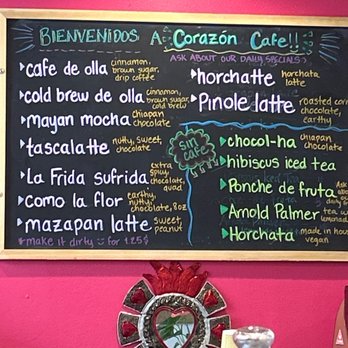 BIENVENIDOS A: Corazón Cafe!!
ASK ABOUT OUR DAILY SPECIALS
cafe de olla cinnamon, brown sugar, drip coffee
cold brew de olla cinnamon, brown sugar, cold brew
mayan mocha chiapan chocolate
tascalatte nutty, sweet, chocolate
La Frida sufrida extra spicy, chocolate, quad
como la flor earthy, nutty, chocolate, 8oz
mazapan latte sweet, peanut
*make it dirty for 1.25$
horchatte horchata latte
Pinole latte roasted corn, chocolate, earthy
sin cafe
chocol-ha chiapan chocolate
hibiscus iced tea
Ponche de fruta
Arnold Palmer
Horchata made in house vegan